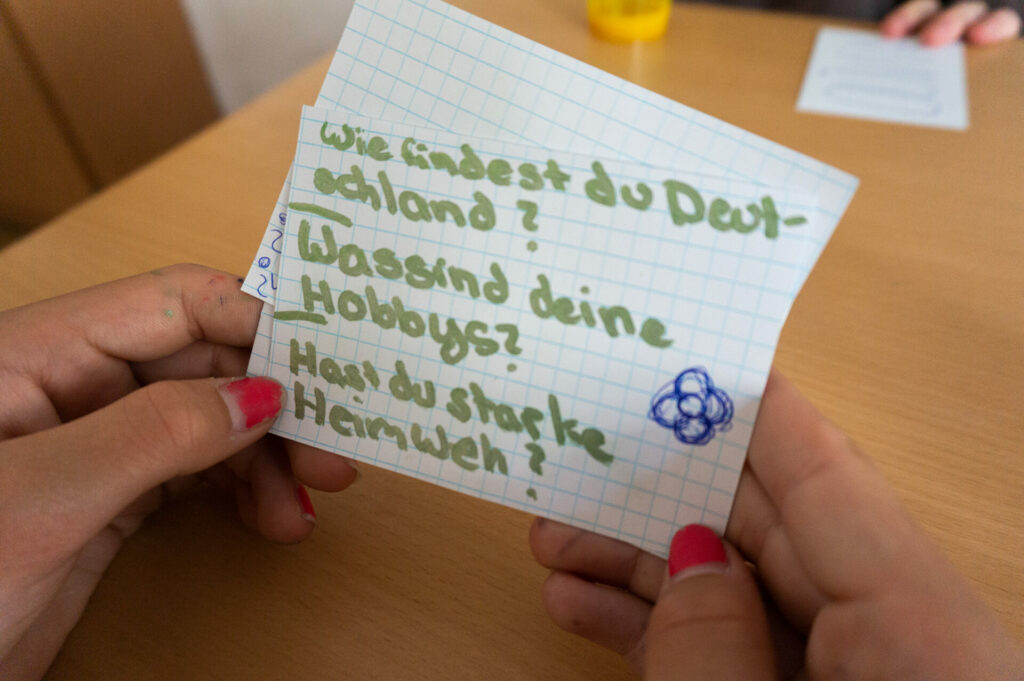 Wie findest du Deut-
schland?
Was sind deine
Hobbys?
Hast du starke
Heimweh?